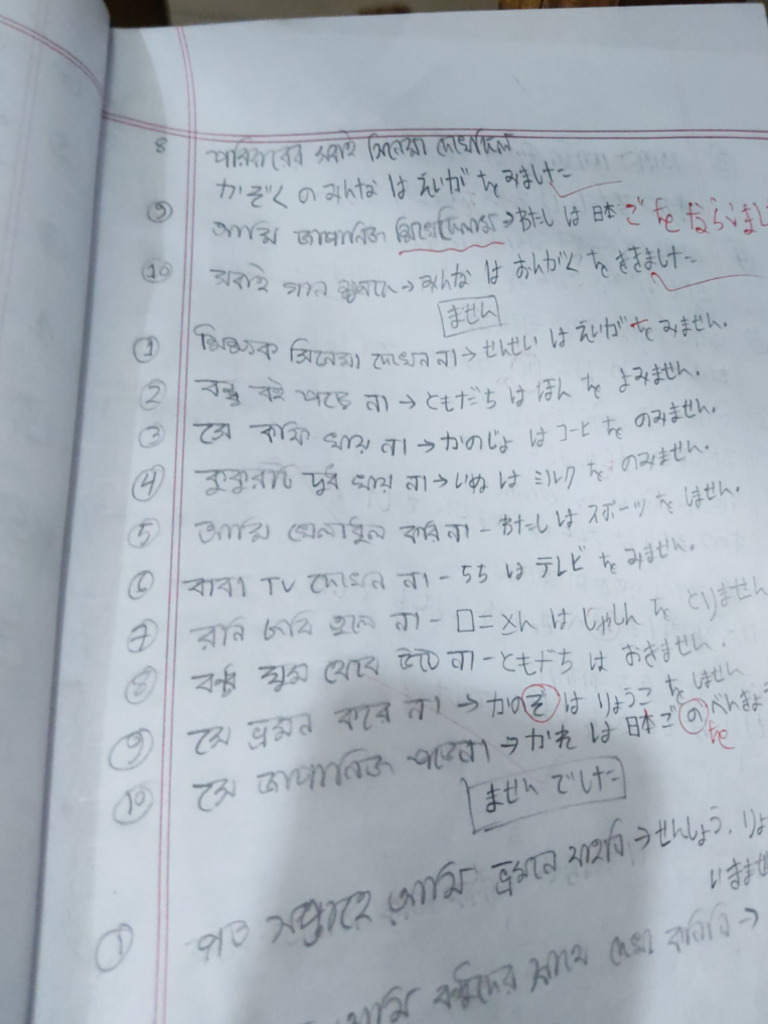 8 পরিবারের সবাই সিনেমা দেখেছিল
かぞく の みんな は えいが を みました
9 আমি জাপানিজ শিখেছিলাম → わたし は 日本 ご を ならいまし
10 সবাই গান শুনছে → みんな は おんがく を ききました
ません
1 শিক্ষক সিনেমা দেখেন না → せんせい は えいが を みません.
2 বন্ধু বই পড়ে না → ともだち は ほん を よみません.
3 সে কফি খায় না → かのじょ は コーヒ を のみません.
4 কুকুরটি দুধ খায় না → いぬ は ミルク を のみません.
5 আমি খেলাধুলা করি না - わたし は スポーツ を しません.
6 বাবা TV দেখেন না - ちち は テレビ を みません.
7 রনি ছবি তুলে না - ロニ さん は しゃしん を とりません
8 বন্ধু ঘুম থেকে উঠে না - ともだち は おきません.
9 সে ভ্রমন করে না → かのぞ は りょうこ を しません
10 সে জাপানিজ পড়েনা → かれ は 日本 ご の べんきょ
を
ません でした
1 গত সপ্তাহে আমি ভ্রমনে যাইনি → せんしょう. りょ
いきませ
আমি বন্ধুদের সাথে দেখা করিনি →